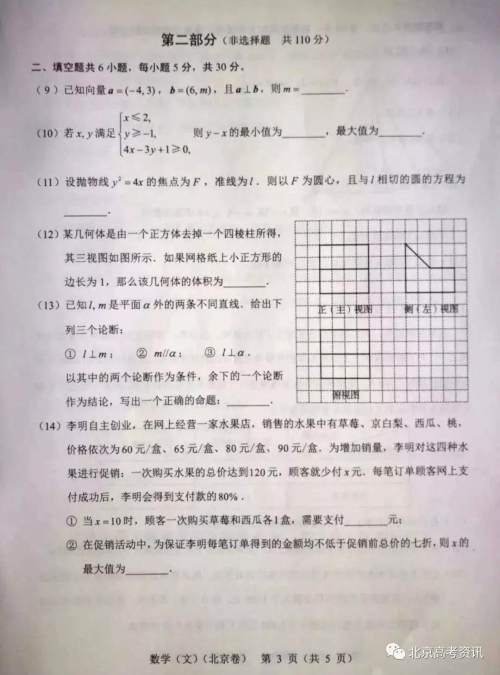 第二部分(非选择题 共110分)
二、填空题共6小题，每小题5分，共30分。
(9)已知向量a=(-4,3)，b=(6,m)，且a⊥b，则m=________.
(10)若x,y满足{x≤2, y≥-1, 4x-3y+1≥0, 则y-x的最小值为________，最大值为________.
(11)设抛物线y²=4x的焦点为F，准线为l．则以F为圆心，且与l相切的圆的方程为
________.
(12)某几何体是由一个正方体去掉一个四棱柱所得，
其三视图如图所示．如果网格纸上小正方形的
边长为1，那么该几何体的体积为________.
正(主)视图
侧(左)视图
俯视图
(13)已知l,m是平面α外的两条不同直线．给出下
列三个论断：
① l⊥m； ② m//α； ③ l⊥α．
以其中的两个论断作为条件，余下的一个论断
作为结论，写出一个正确的命题：________.
(14)李明自主创业，在网上经营一家水果店，销售的水果中有草莓、京白梨、西瓜、桃，
价格依次为60元/盒、65元/盒、80元/盒、90元/盒．为增加销量，李明对这四种水
果进行促销：一次购买水果的总价达到120元，顾客就少付x元．每笔订单顾客网上支
付成功后，李明会得到支付款的80%．
① 当x=10时，顾客一次购买草莓和西瓜各1盒，需要支付________元；
② 在促销活动中，为保证李明每笔订单得到的金额均不低于促销前总价的七折，则x的
最大值为________.
数学(文)(北京卷) 第3页(共5页)
北京高考资讯